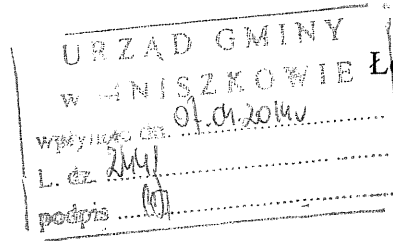 URZĄD GMINY
w MNISZKOWIE
wpłynęło dn. 07.01.2014
L. dz.
podpis